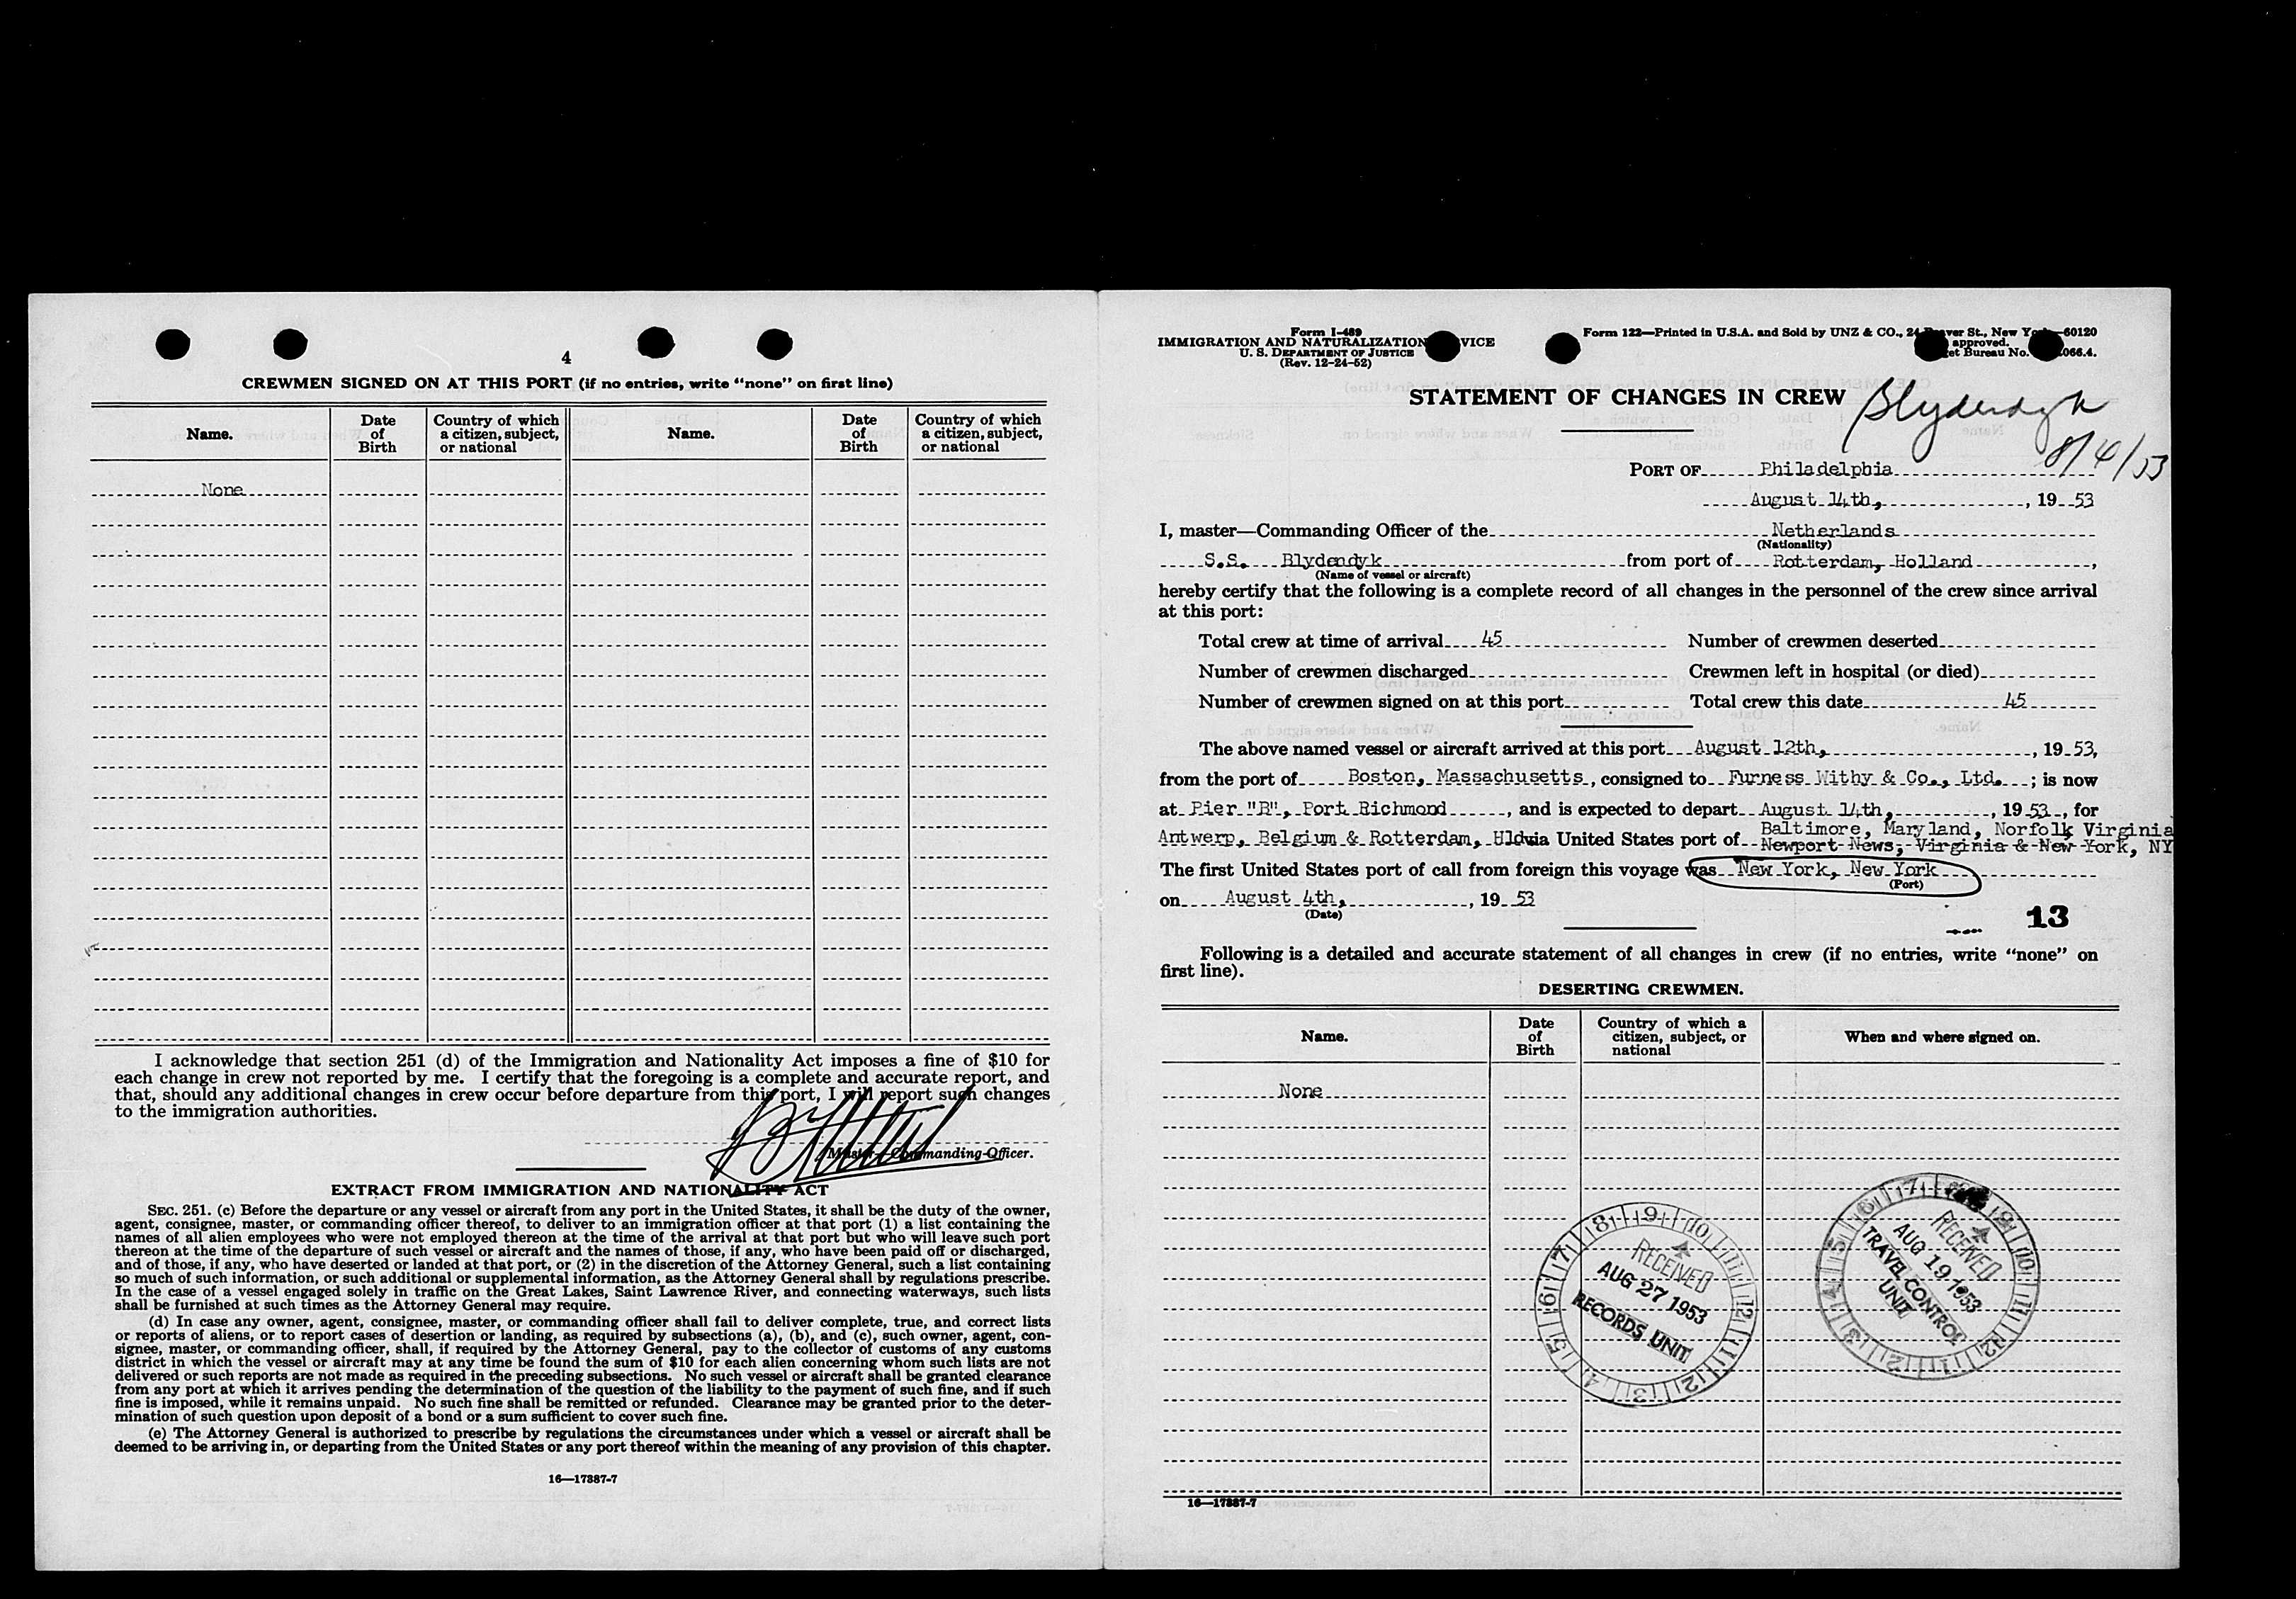 4
CREWMEN SIGNED ON AT THIS PORT (if no entries, write “none” on first line)
Name. Date of Birth Country of which a citizen, subject, or national Name. Date of Birth Country of which a citizen, subject, or national
None
I acknowledge that section 251 (d) of the Immigration and Nationality Act imposes a fine of $10 for
each change in crew not reported by me. I certify that the foregoing is a complete and accurate report, and
that, should any additional changes in crew occur before departure from this port, I will report such changes
to the immigration authorities.
Master—Commanding Officer.
EXTRACT FROM IMMIGRATION AND NATIONALITY ACT
SEC. 251. (c) Before the departure or any vessel or aircraft from any port in the United States, it shall be the duty of the owner,
agent, consignee, master, or commanding officer thereof, to deliver to an immigration officer at that port (1) a list containing the
names of all alien employees who were not employed thereon at the time of the arrival at that port but who will leave such port
thereon at the time of the departure of such vessel or aircraft and the names of those, if any, who have been paid off or discharged,
and of those, if any, who have deserted or landed at that port, or (2) in the discretion of the Attorney General, such a list containing
so much of such information, or such additional or supplemental information, as the Attorney General shall by regulations prescribe.
In the case of a vessel engaged solely in traffic on the Great Lakes, Saint Lawrence River, and connecting waterways, such lists
shall be furnished at such times as the Attorney General may require.
(d) In case any owner, agent, consignee, master, or commanding officer shall fail to deliver complete, true, and correct lists
or reports of aliens, or to report cases of desertion or landing, as required by subsections (a), (b), and (c), such owner, agent, con-
signee, master, or commanding officer, shall, if required by the Attorney General, pay to the collector of customs of any customs
district in which the vessel or aircraft may at any time be found the sum of $10 for each alien concerning whom such lists are not
delivered or such reports are not made as required in the preceding subsections. No such vessel or aircraft shall be granted clearance
from any port at which it arrives pending the determination of the question of the liability to the payment of such fine, and if such
fine is imposed, while it remains unpaid. No such fine shall be remitted or refunded. Clearance may be granted prior to the deter-
mination of such question upon deposit of a bond or a sum sufficient to cover such fine.
(e) The Attorney General is authorized to prescribe by regulations the circumstances under which a vessel or aircraft shall be
deemed to be arriving in, or departing from the United States or any port thereof within the meaning of any provision of this chapter.
16—17387-7
Form I-489
IMMIGRATION AND NATURALIZATION VICE
U. S. DEPARTMENT OF JUSTICE
(Rev. 12-24-52)
Form 122—Printed in U.S.A. and Sold by UNZ & CO., 24 ver St., New Yo —60120
approved.
et Bureau No. 066.4.
STATEMENT OF CHANGES IN CREW
Blydendyk
8/4/53
PORT OF Philadelphia
August 14th, , 19 53
I, master—Commanding Officer of the Netherlands
(Nationality)
S.S. Blydendyk from port of Rotterdam, Holland ,
(Name of vessel or aircraft)
hereby certify that the following is a complete record of all changes in the personnel of the crew since arrival
at this port:
Total crew at time of arrival 45 Number of crewmen deserted
Number of crewmen discharged Crewmen left in hospital (or died)
Number of crewmen signed on at this port Total crew this date 45
The above named vessel or aircraft arrived at this port August 12th, , 19 53,
from the port of Boston, Massachusetts , consigned to Furness Withy & Co., Ltd. ; is now
at Pier "B", Port Richmond , and is expected to depart August 14th, , 19 53 , for
Baltimore, Maryland, Norfolk Virginia
Antwerp, Belgium & Rotterdam, Hld via United States port of Newport News, Virginia & New York, NY
The first United States port of call from foreign this voyage was New York, New York
(Port)
on August 4th, , 19 53
(Date)
13
Following is a detailed and accurate statement of all changes in crew (if no entries, write “none” on
first line).
DESERTING CREWMEN.
Name. Date of Birth Country of which a citizen, subject, or national When and where signed on.
None
8 9 10 11 12 1 2 3 4 5 6 7
RECEIVED
AUG 27 1953
RECORDS UNIT
7 9 10 11 12 1 2 3 4 5 6
RECEIVED
AUG 19 1953
TRAVEL CONTROL
UNIT
16—17387-7